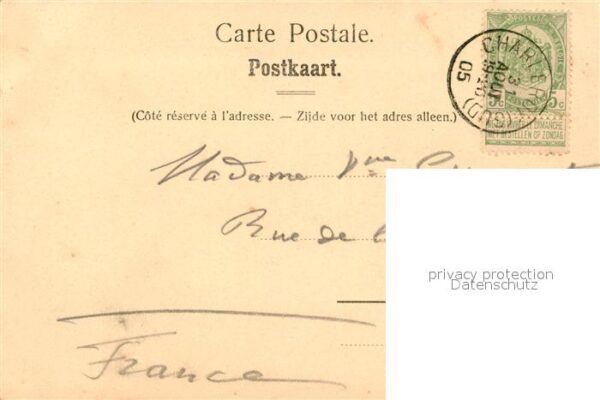 Carte Postale.
Postkaart.
(Côté réservé à l'adresse. — Zijde voor het adres alleen.)
POSTES
CHARLEROI (SUD)
31
AOUT
19-20
05
5c 5c
NE PAS LIVRER LE DIMANCHE
NIET BESTELLEN OP ZONDAG
Madame Vve
Rue de
privacy protection
Datenschutz
France